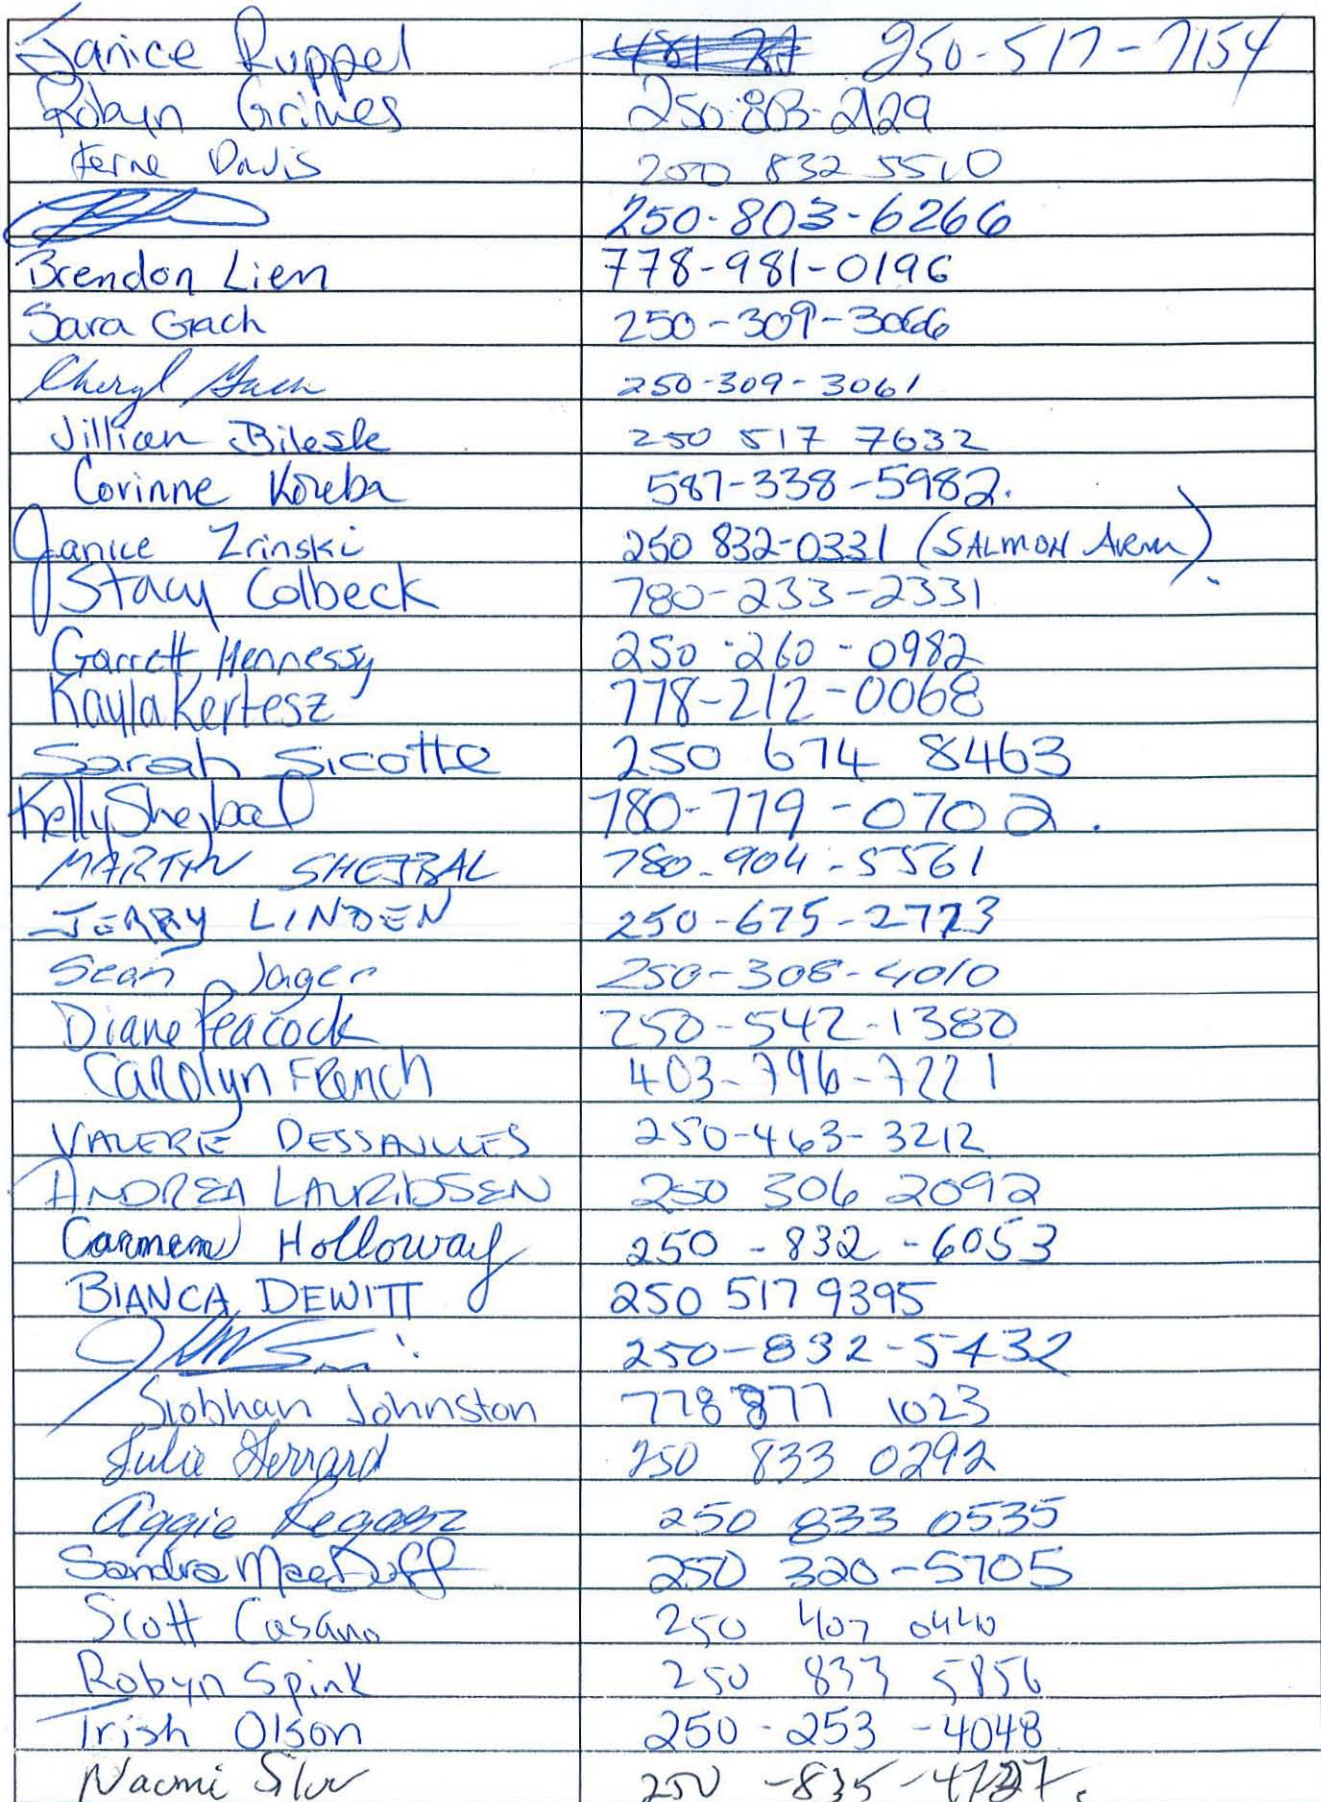 Janice Ruppel 250-517-7154
Robyn Grimes 250-803-2129
Ferne Davis 250 832 5510
250-803-6266
Brendon Lien 778-981-0196
Sara Gach 250-309-3066
Cheryl 250-309-3061
Jillian Bileske 250 517 7632
Corinne 587-338-5982.
Janice Zrinski 250 832-0331 (SALMON ARM)
Stacy Colbeck 780-233-2331
Garrett Hennessy 250-260-0982
Kayla Kertesz 778-212-0068
Sarah Sicotte 250 674 8463
Kelly Shejbal 780-779-0702.
MARTIN SHEJBAL 780-904-5561
JERRY LINDEN 250-675-2773
Sean Jager 250-308-4010
Diane Peacock 250-542-1380
Carolyn French 403-796-7221
VALERIE DESSAULLES 250-463-3212
ANDREA LAURIDSEN 250 306 2092
Carmen Holloway 250-832-6053
BIANCA DEWITT 250 517 9395
250-832-5432
Siobhan Johnston 778 877 1023
Julie Gerrard 250 833 0292
Aggie 250 833 0535
Sandra MacDuff 250 320-5705
Scott Casano 250 407 0440
Robyn Spink 250 833 5856
Trish Olson 250-253-4048
Naomi 250-835-